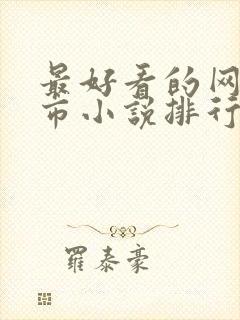 最好看的网
市小説排行
羅泰豪